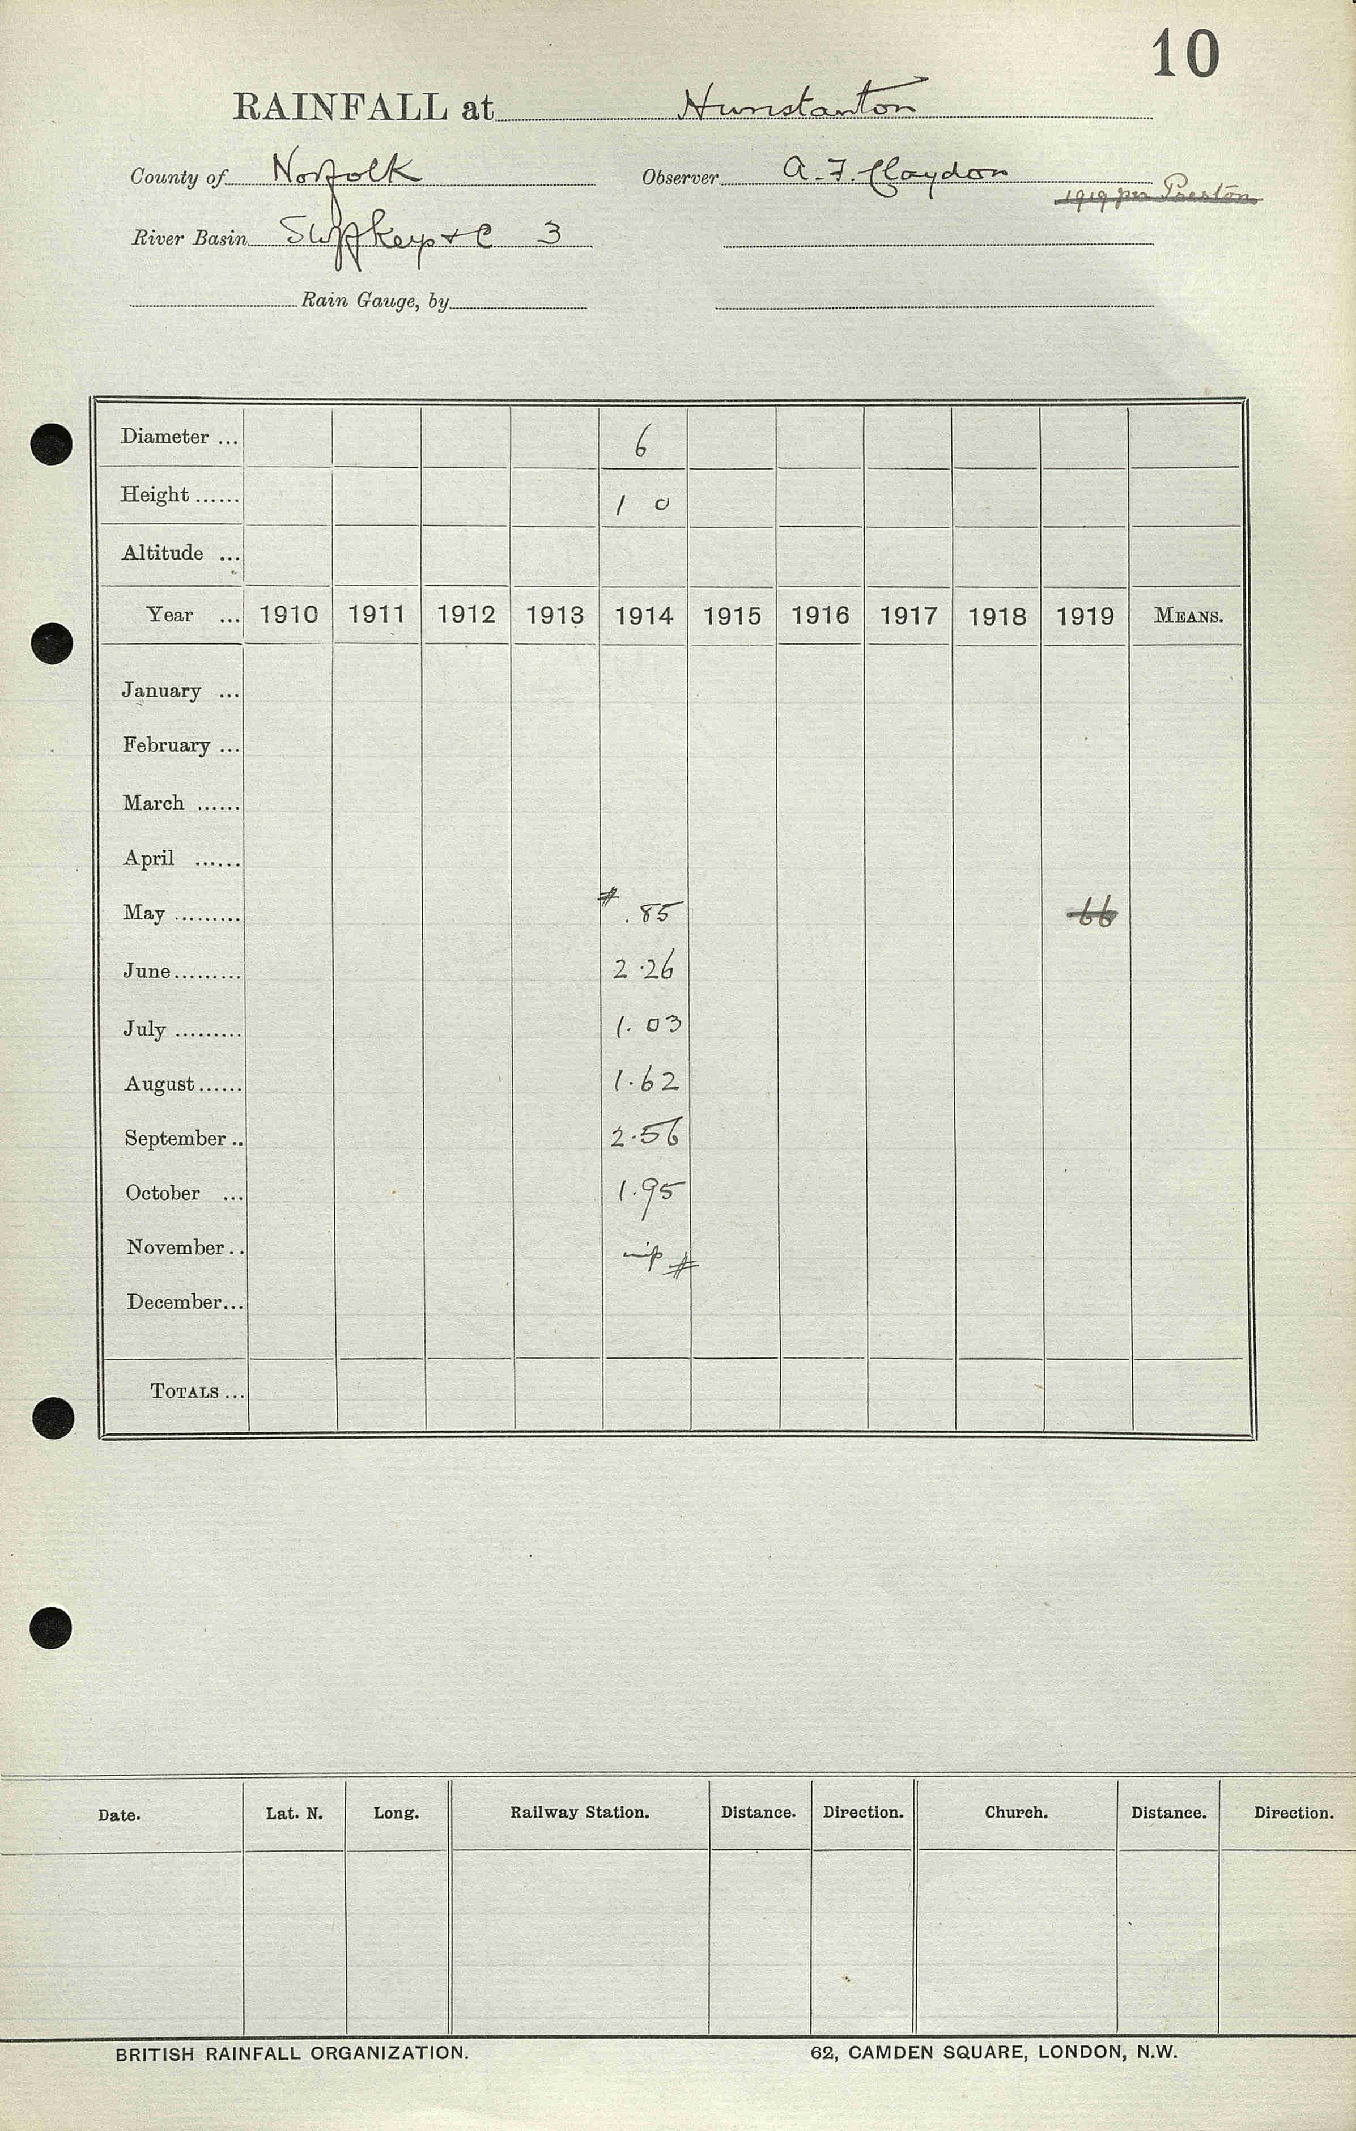 10
RAINFALL at Hunstanton
County of Norfolk Observer A. F. Claydon
1919 per Preston
River Basin 3
Rain Gauge, by
Diameter ... 6
Height ...... 1 0
Altitude ...
Year ... 1910 1911 1912 1913 1914 1915 1916 1917 1918 1919 MEANS.
January ...
February ...
March ......
April ......
May ......... # .85 66
June ......... 2.26
July ......... 1.03
August ...... 1.62
September .. 2.56
October ... 1.95
November .. #
December ...
TOTALS ...
Date. Lat. N. Long. Railway Station. Distance. Direction. Church. Distance. Direction.
BRITISH RAINFALL ORGANIZATION. 62, CAMDEN SQUARE, LONDON, N.W.